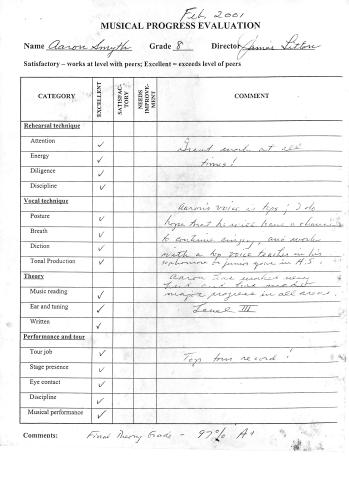 Feb, 2001
MUSICAL PROGRESS EVALUATION
Name Aaron Smyth Grade 8 Director James Litton
Satisfactory – works at level with peers; Excellent = exceeds level of peers
CATEGORY EXCELLENT SATISFAC-TORY NEEDS IMPROVE-MENT COMMENT
Rehearsal technique
Attention ✓ Great work at all
Energy ✓ times!
Diligence ✓
Discipline ✓
Vocal technique Aaron's voice is tops; I do
Posture ✓ hope that he will have a chance
Breath ✓ to continue singing, and work
Diction ✓ with a top voice teacher in his
Tonal Production ✓ sophomore to junior year in H.S.
Theory Aaron has worked very
Music reading ✓ hard and has made major progress in all areas.
Ear and tuning ✓ Level III
Written ✓
Performance and tour
Tour job ✓ Top tour record!
Stage presence ✓
Eye contact ✓
Discipline ✓
Musical performance ✓
Comments: Final Theory Grade - 97% A+